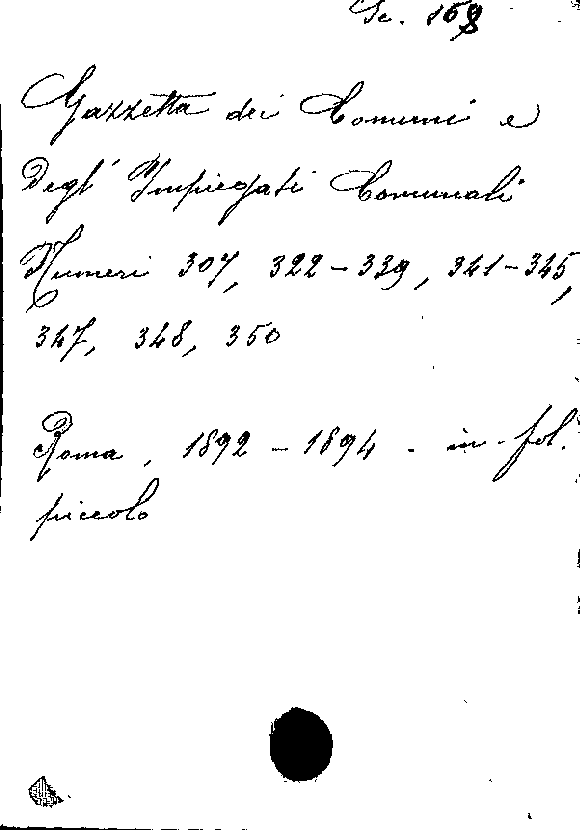 Sc. 168
Gazzetta dei Comuni e
degl' Impiegati Comunali
Numeri 307, 322-339, 341-345,
347, 348, 350
Roma, 1892-1894 - in-fol.
piccolo